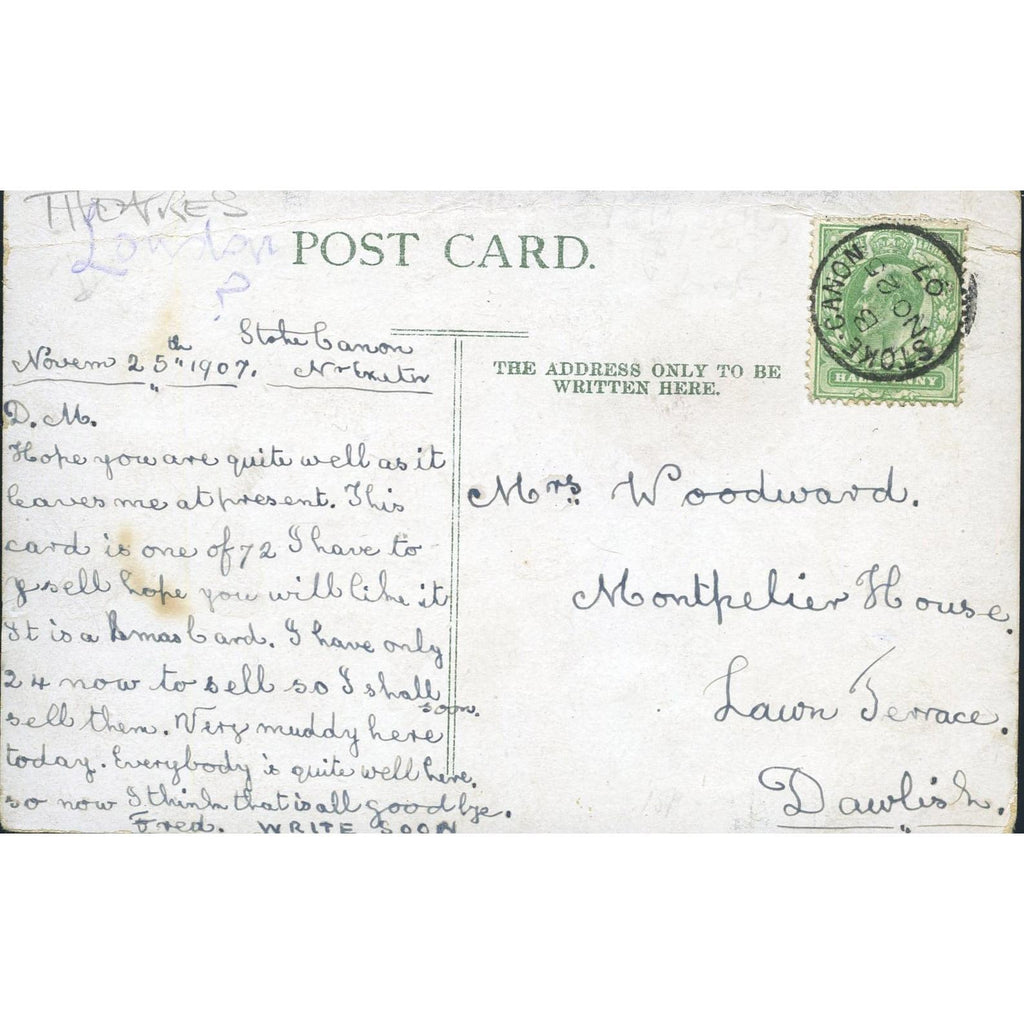 THEATRES
London
?
POST CARD.
STOKE·CANON
B
NO 25
07
HALFPENNY
Stoke Canon
Novem 25th 1907. Nr Exeter
THE ADDRESS ONLY TO BE
WRITTEN HERE.
D. M.
Hope you are quite well as it
leaves me at present. This
card is one of 72 I have to
sell hope you will like it
It is a Xmas Card. I have only
24 now to sell so I shall
soon.
sell them. Very muddy here
today. Everybody is quite well here.
so now I think that is all goodbye.
Fred. WRITE SOON
Mrs Woodward.
Montpelier House.
Lawn Terrace.
Dawlish.